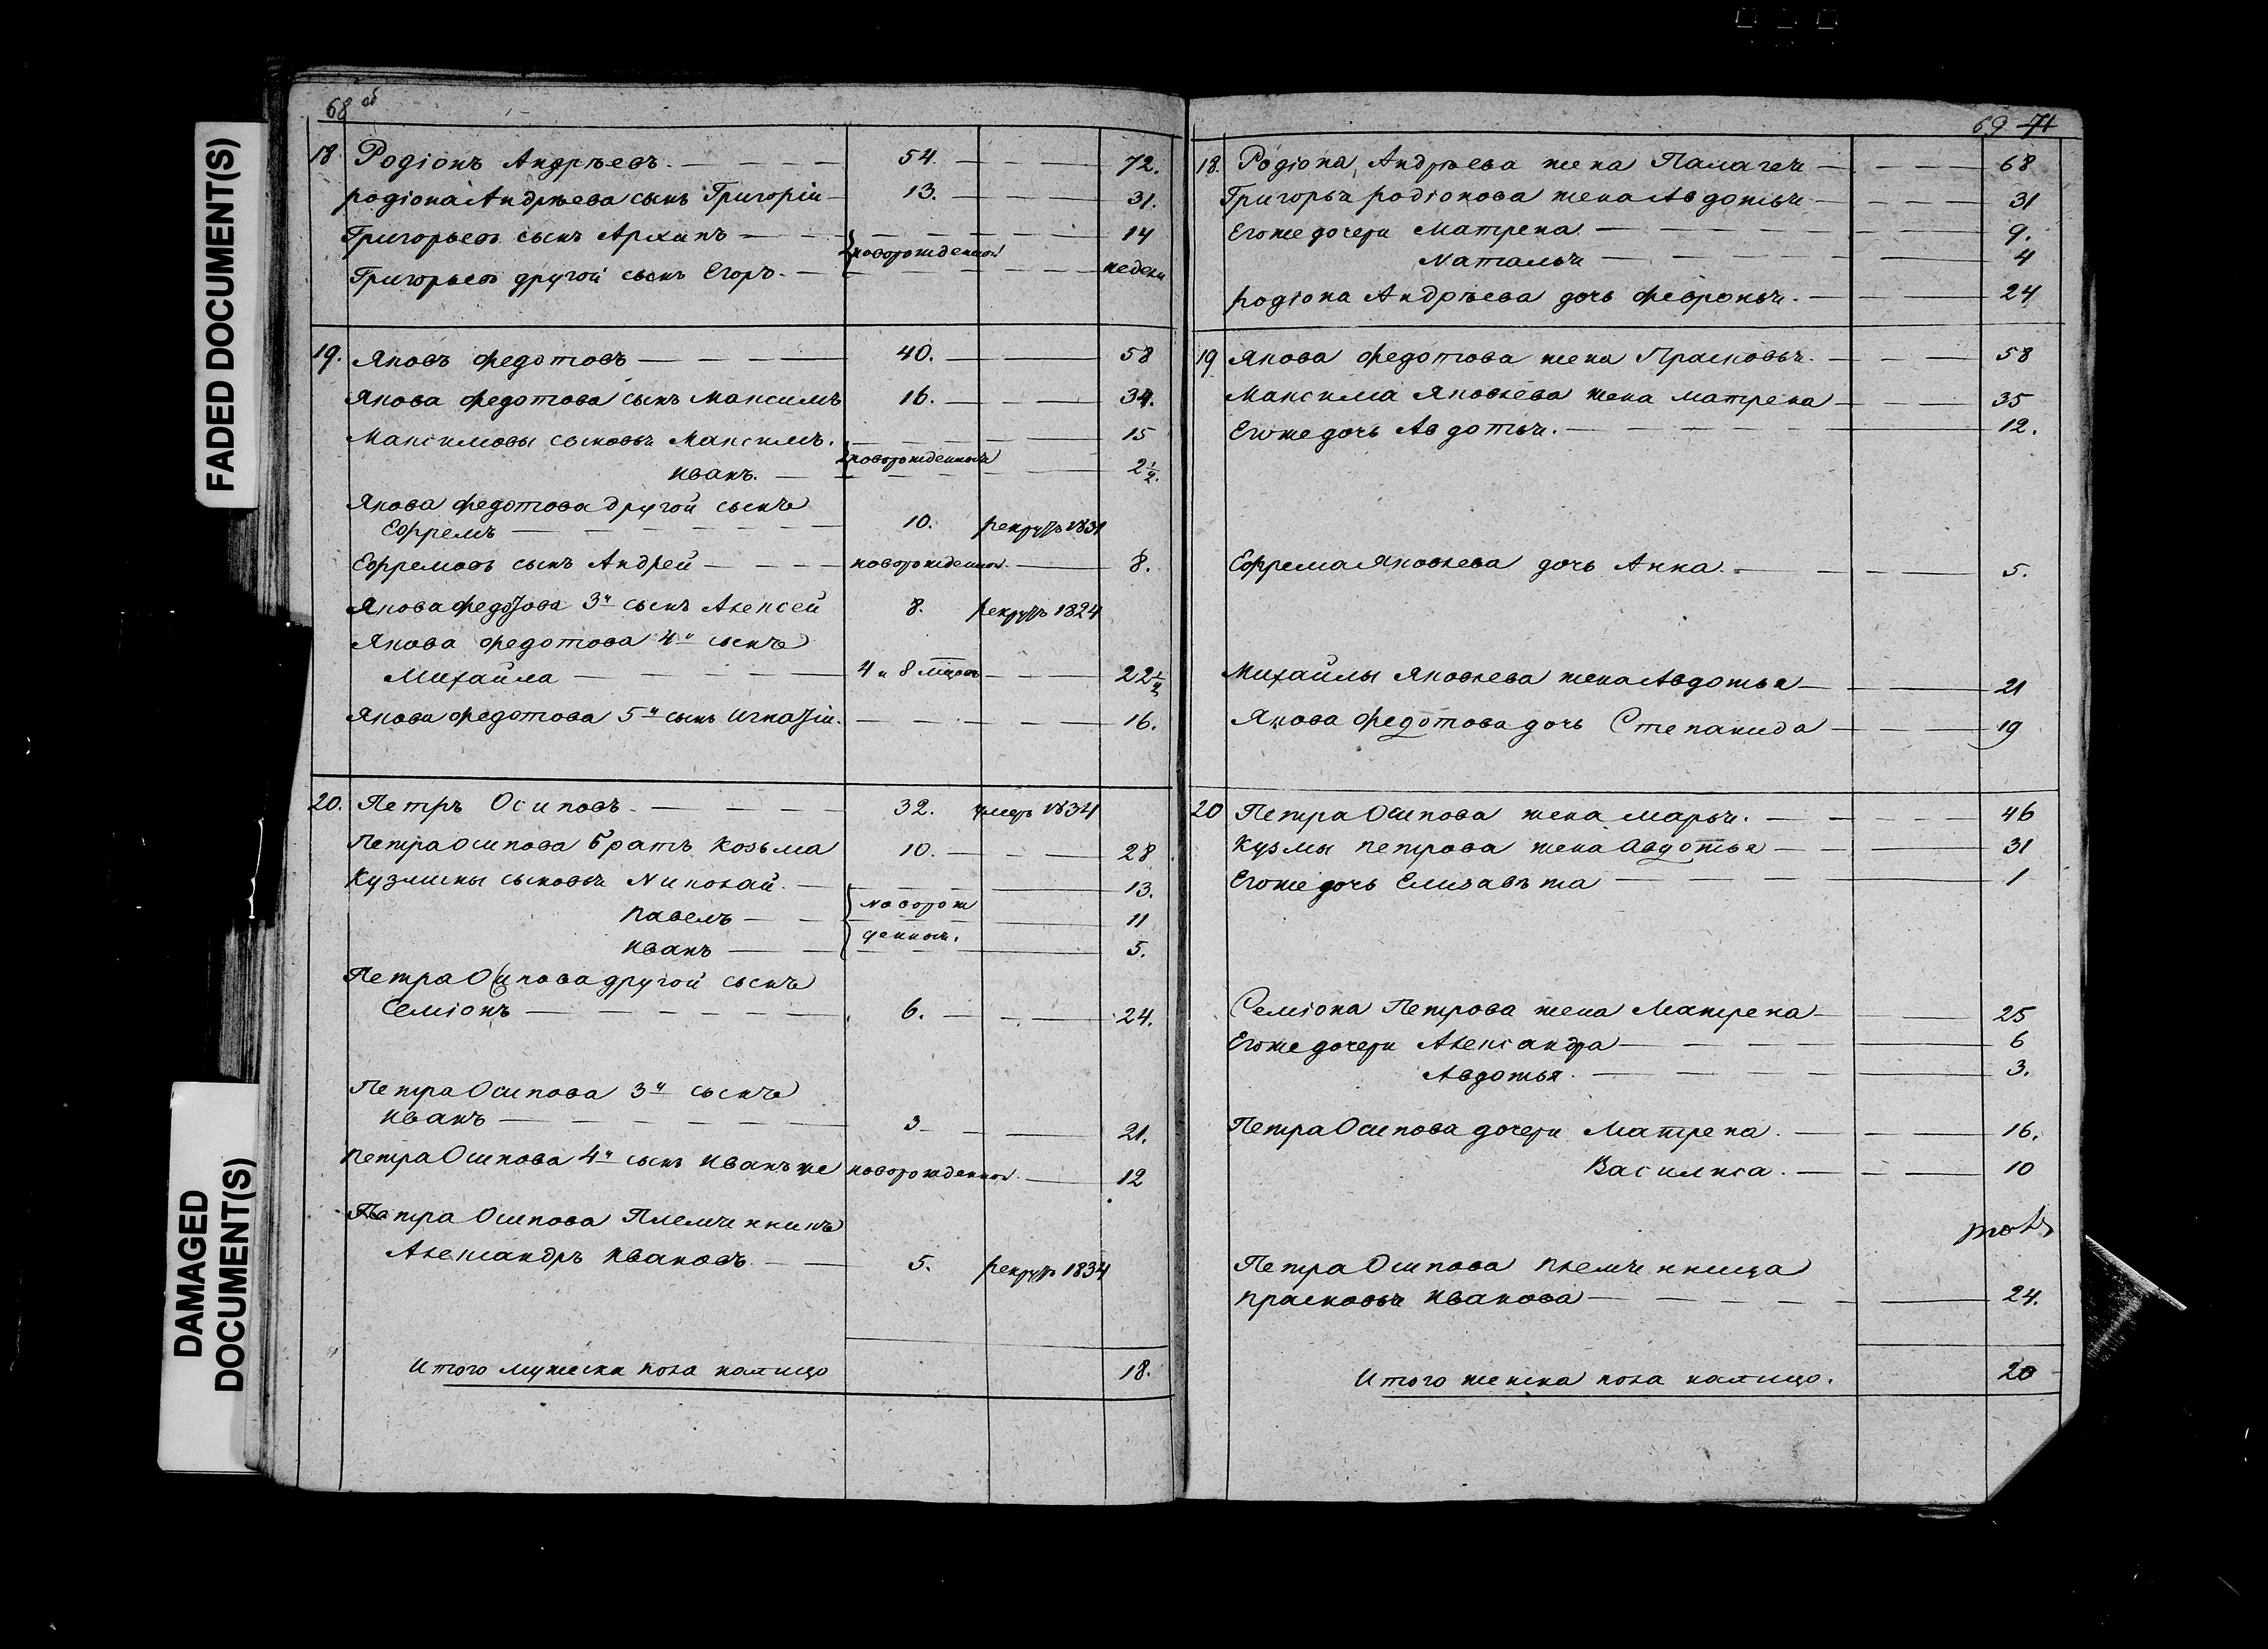 FADED DOCUMENT(S)
DAMAGED
DOCUMENT(S)
68 об
18. Родіонъ Андрѣевъ. 54. 72.
родіона Андрѣева сынъ Григорій 13. 31.
Григорьевъ сынъ Архипъ 14
новорожденной
Григорьевъ другой сынъ Егоръ. недели
19. Яковъ Федотовъ 40. 58
Якова Федотова сынъ Максимъ 16. 34.
Максимовы сыновья Максимъ. 15
новорожденныя
Иванъ. 2 1/2.
Якова Федотова другой сынъ
Ефремъ 10. рекрутъ 1831
Ефремовъ сынъ Андрей новорожденной. 8.
Якова Федотова 3й сынъ Алексей 8. рекрутъ 1824
Якова Федотова 4й сынъ
Михайла 4 и 8 мцовъ 22 1/2
Якова Федотова 5й сынъ Игнатій. 16.
20. Петръ Осиповъ. 32. умеръ 1834
Петра Осипова братъ Козьма 10. 28
Кузмины сыновья Николай. 13.
Павелъ новорож 11
Иванъ денныя. 5.
Петра Осипова другой сынъ
Семіонъ 6. 24.
Петра Осипова 3й сынъ
Иванъ 3 21.
Петра Осипова 4й сынъ Иванъ же новорожденной 12
Петра Осипова Племянникъ
Александръ Ивановъ. 5. рекрутъ 1834
Итого мужеска пола налицо 18.
69 71
18. Родіона Андрѣева жена Палагея 68
Григорья родіонова жена Авдотья 31
Его же дочери Матрена 9.
Наталья 4
родіона Андрѣева дочь Февронья. 24
19 Якова Федотова жена Прасковья. 58
Максима Яковлева жена Матрена 35
Его же дочь Авдотья. 12.
Ефрема Яковлева дочь Анна. 5.
Михайлы Яковлева жена Авдотья 21
Якова Федотова дочь Степанида 19
20 Петра Осипова жена Марья. 46
Кузмы Петрова жена Авдотья 31
Его же дочь Елизавѣта 1
Семіона Петрова жена Матрена 25
Его же дочери Александра 6
Авдотья. 3.
Петра Осипова дочери Матрена. 16.
Василиса. 10
Петра Осипова племянница
Прасковья Иванова 24.
Итого женска пола налицо. 20